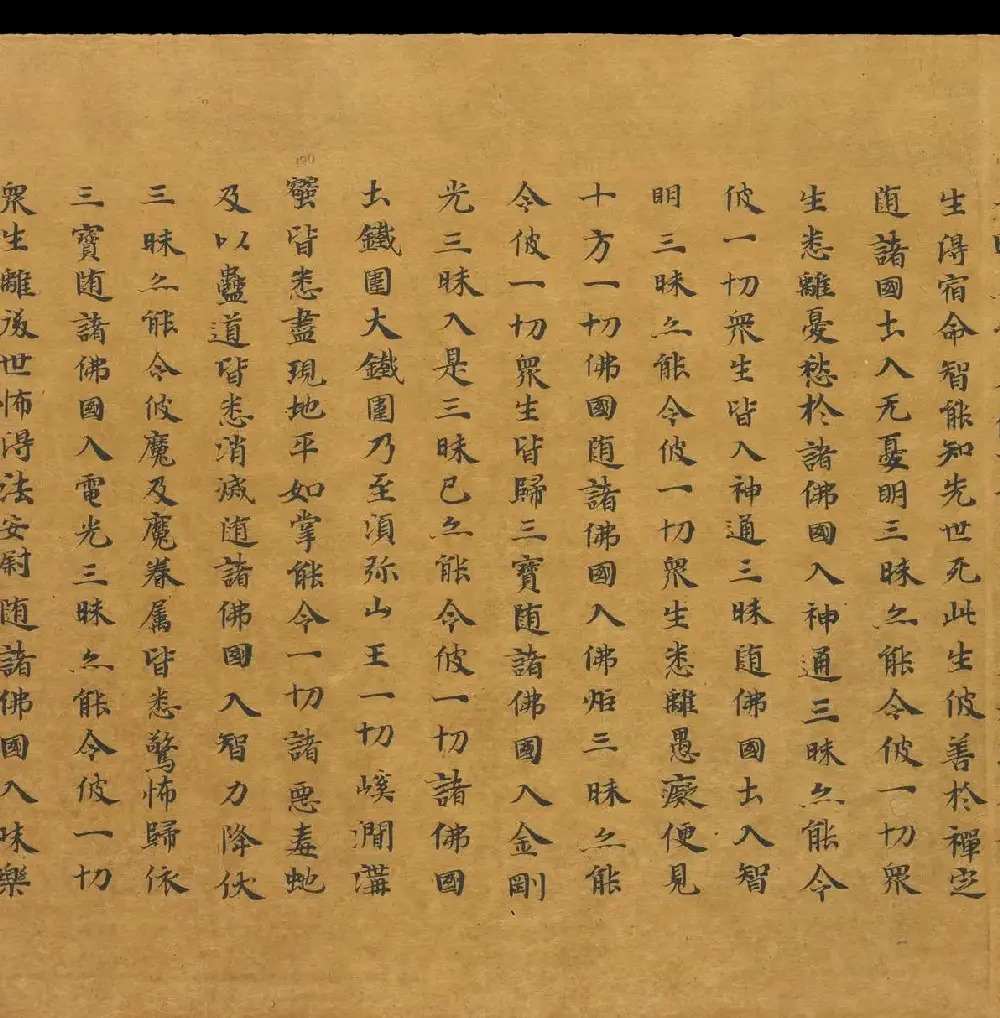 生得宿命智能知先世死此生彼善於禪定
随諸國土入无憂明三昧亦能令彼一切衆
生悉離憂愁於諸佛國入神通三昧亦能令
彼一切衆生皆入神通三昧随佛國土入智
明三昧亦能令彼一切衆生悉離愚癡便見
十方一切佛國随諸佛國入佛炬三昧亦能
令彼一切衆生皆歸三寶随諸佛國入金剛
光三昧入是三昧已亦能令彼一切諸佛國
土鐵圍大鐵圍乃至湏弥山王一切嵠澗溝
壑皆悉盡現地平如掌能令一切諸惡毒虵
及以蠱道皆悉消滅随諸佛國入智力降伏
三昧亦能令彼魔及魔眷属皆悉驚怖歸依
三寶随諸佛國入電光三昧亦能令彼一切
衆生離後世怖得法安尉随諸佛國入味樂